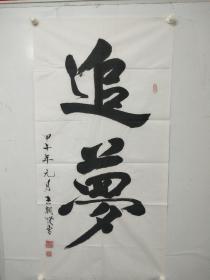 追夢
甲午年元月